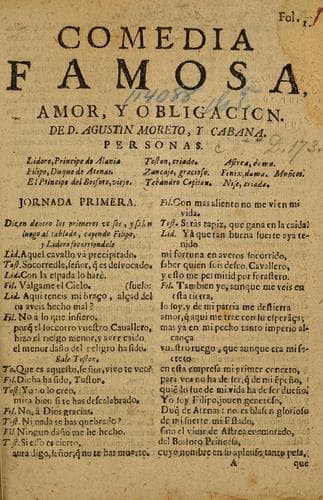 Fol. 1.
COMEDIA
FAMOSA,
AMOR, Y OBLIGACION.
DE D. AGUSTIN MORETO, Y CABANA.
PERSONAS.
Lidoro, Principe de Alania
Filipo, Duque de Atenas.
El Principe del Bosforo, viejo.
Toston, criado.
Zancajo, gracioso.
Tebandro Capitan.
Astrea, dama.
Fenix, dama. Musicos.
Nise, criada.
JORNADA PRIMERA.
Dizen dentro los primeros versos, y salen
luego al tablado, cayendo Filipo,
y Lidoro socorriendole
Lid. Aquel cavallo và precipitado.
Tost. Socorredle, señor, que es desvocado.
Lid. Con la espada lo harè.
Fil. Valgame el Cielo. (suelo:
Lid. Aqui teneis mi braço, al del
os aveis hecho mal?
Fil. No a lo que infiero,
porq el socorro vuestro Cavallero,
hizo el riesgo menor, y aver caido
el menor daño del peligro ha sido.
Sale Toston.
To. Que es aquesto, señor, vivo te veo?
Fil. Dicha ha sido, Toston.
Tost. Yo no lo creo,
mira bien si te has descalabrado.
Fil. No, à Dios gracias.
Tost. Ni nada se has quebrado?
Fil. Ningun daño me he hecho.
T. Si esso es cierto,
aora digo, señor, q no te has muerto.
Fil. Con mas aliento no me vi en mi
vida.
Tost. Seràs tapiz, que gana en la caida!
Lid. Yà que tan buena suerte aya tenido
mi fortuna en averos socorrido,
saber quien sois deseo, Cavallero,
y esto me permitid por forastero.
Fil. Tambien yo, aunque me veis en
esta tierra,
lo soy, y de mi patria me destierra
amor, aqui me trae con su esperãça;
mas yà en mi pecho tanto imperio
alcança
vuestro ruego, que aunque era mi secreto
en esta empresa mi primer concepto,
para vos no ha de ser, q de mi
quiẽ fue de mi vida ha de ser dueño.
Yo soy Filipo, joven generoso,
Duq de Atenas: no es blason glorioso
de mi suerte mi Estado,
sino el vivir de Astrea enamorado,
del Bosforo Princesa,
cuyo nombre en su aplauso, tanto pesa,
A que